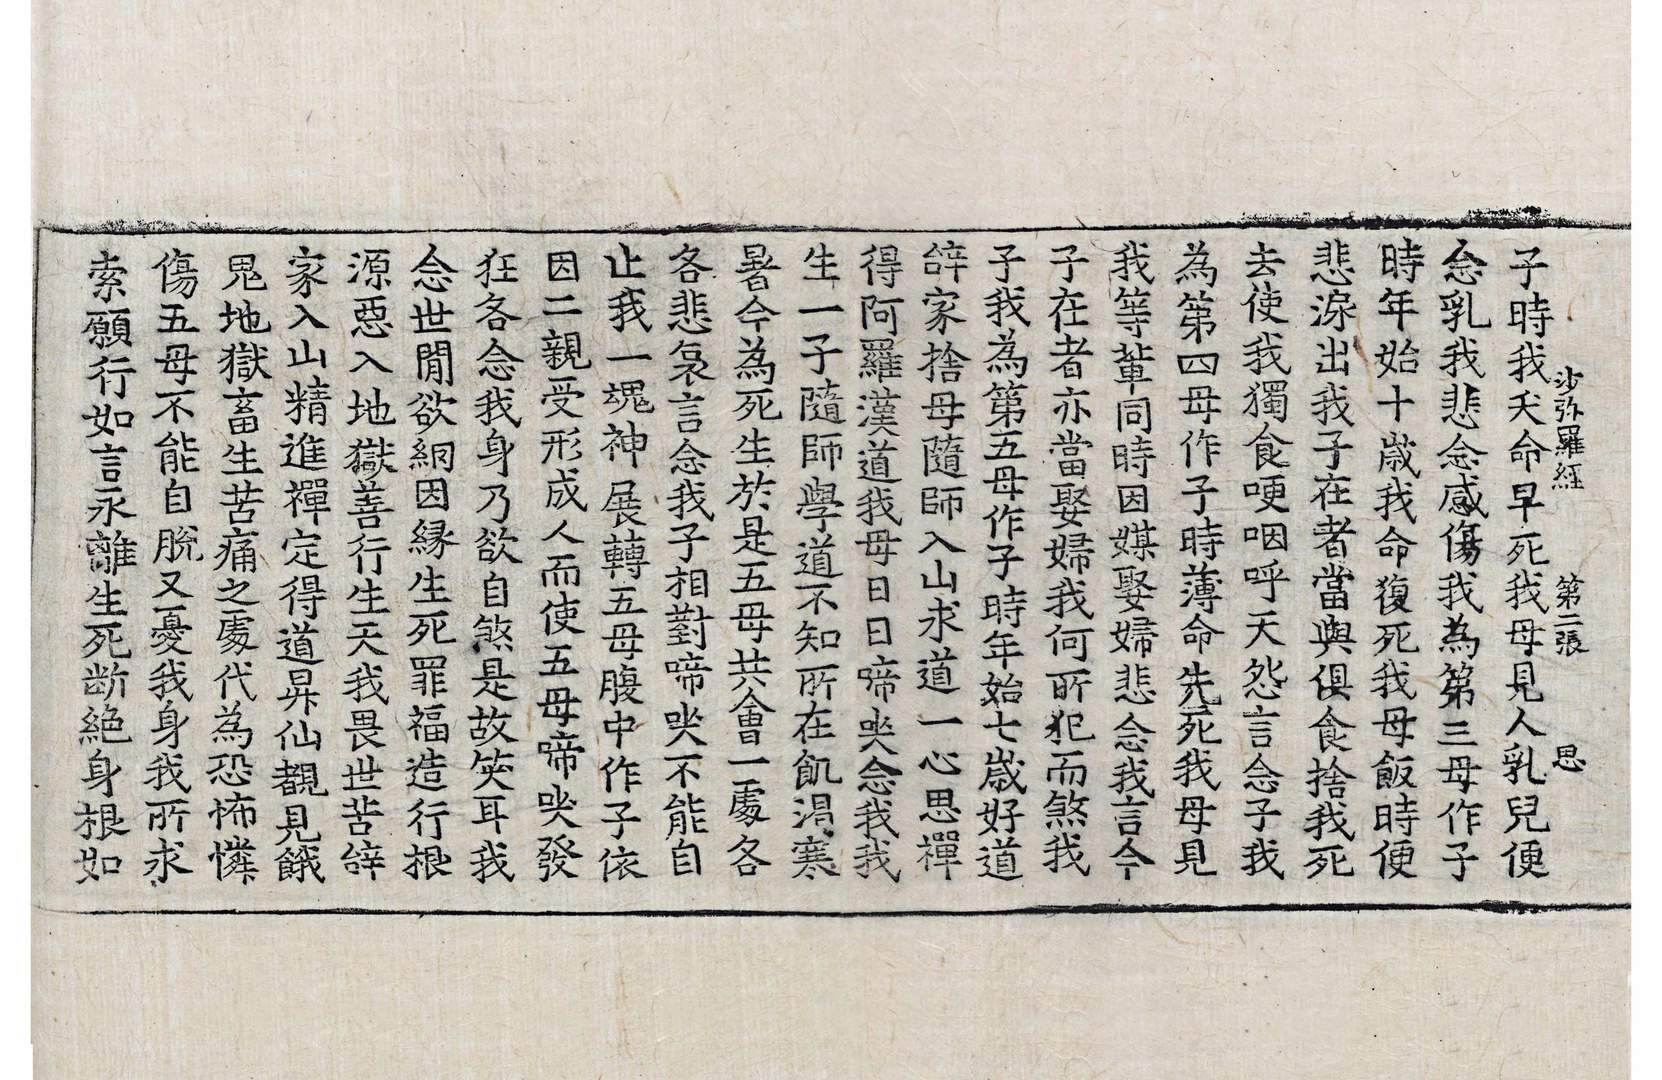 沙弥羅經 第二張 思
子時我夭命早死我母見人乳兒便
念乳我悲念感傷我為第三母作子
時年始十歲我命復死我母飯時便
悲淚出我子在者當與俱食捨我死
去使我獨食哽咽呼天怨言念子我
為第四母作子時薄命先死我母見
我等輩同時因媒娶婦悲念我言今
子在者亦當娶婦我何所犯而煞我
子我為第五母作子時年始七歲好道
辝家捨母隨師入山求道一心思禪
得阿羅漢道我母日日啼哭念我我
生一子隨師學道不知所在飢渴寒
暑今為死生於是五母共會一處各
各悲哀言念我子相對啼哭不能自
止我一塊神展轉五母腹中作子依
因二親受形成人而使五母啼哭發
狂各念我身乃欲自煞是故笑耳我
念世閒欲網因縁生死罪福造行根
源惡入地獄善行生天我畏世苦辝
家入山精進禪定得道昇仙覩見餓
鬼地獄畜生苦痛之處代為恐怖憐
傷五母不能自脫又憂我身我所求
索願行如言永離生死斷絕身根如